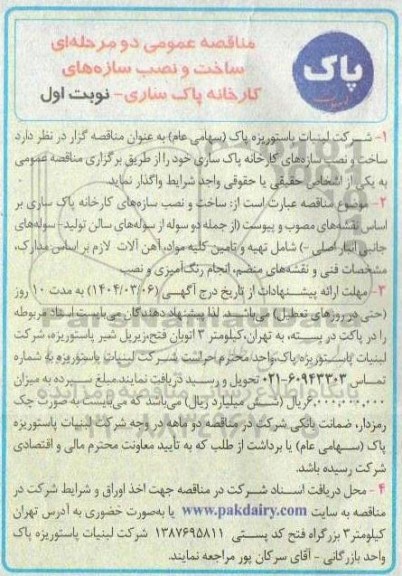 پاک
مناقصه عمومی دو مرحله‌ای
ساخت و نصب سازه‌های
کارخانه پاک ساری- نوبت اول
۱- شرکت لبنیات پاستوریزه پاک (سهامی عام) به عنوان مناقصه گزار در نظر دارد
ساخت و نصب سازه‌های کارخانه پاک ساری خود را از طریق برگزاری مناقصه عمومی
به یکی از اشخاص حقیقی یا حقوقی واجد شرایط واگذار نماید.
۲- موضوع مناقصه عبارت است از: ساخت و نصب سازه‌های کارخانه پاک ساری بر
اساس نقشه‌های مصوب و پیوست (از جمله دو سوله از سوله‌های سالن تولید- سوله‌های
جانبی انبار اصلی -) شامل تهیه و تامین کلیه مواد، آهن آلات لازم بر اساس مدارک،
مشخصات فنی و نقشه‌های منضم، انجام رنگ‌آمیزی و نصب
۳- مهلت ارائه پیشنهادات از تاریخ درج آگهی (۱۴۰۴/۰۳/۰۶) به مدت ۱۰ روز
(حتی در روزهای تعطیل) می‌باشد. لذا پیشنهاد دهندگان می‌بایست اسناد مربوطه
را در پاکت در بسته، به تهران، کیلومتر ۳ اتوبان فتح، زیرپل شیر پاستوریزه، شرکت
لبنیات پاستوریزه پاک، واحد محترم حراست شرکت لبنیات پاستوریزه به شماره
تماس ۶۰۹۴۳۳۰۳-۰۲۱ تحویل و رسید دریافت نمایند. مبلغ سپرده به میزان
۶,۰۰۰,۰۰۰,۰۰۰ ریال (شش میلیارد ریال) می‌باشد که می‌بایست به صورت چک
رمزدار، ضمانت بانکی شرکت در مناقصه دو ماهه در وجه شرکت لبنیات پاستوریزه
پاک (سهامی عام) یا برداشت از طلب که به تأیید معاونت محترم مالی و اقتصادی
شرکت رسیده باشد.
۴- محل دریافت اسناد شرکت در مناقصه جهت اخذ اوراق و شرایط شرکت در
مناقصه به سایت www.pakdairy.com یا به‌صورت حضوری به آدرس تهران
کیلومتر ۳ بزرگراه فتح کد پستی ۱۳۸۷۶۹۵۸۱۱ شرکت لبنیات پاستوریزه پاک
واحد بازرگانی - آقای سرکان پور مراجعه نمایند.